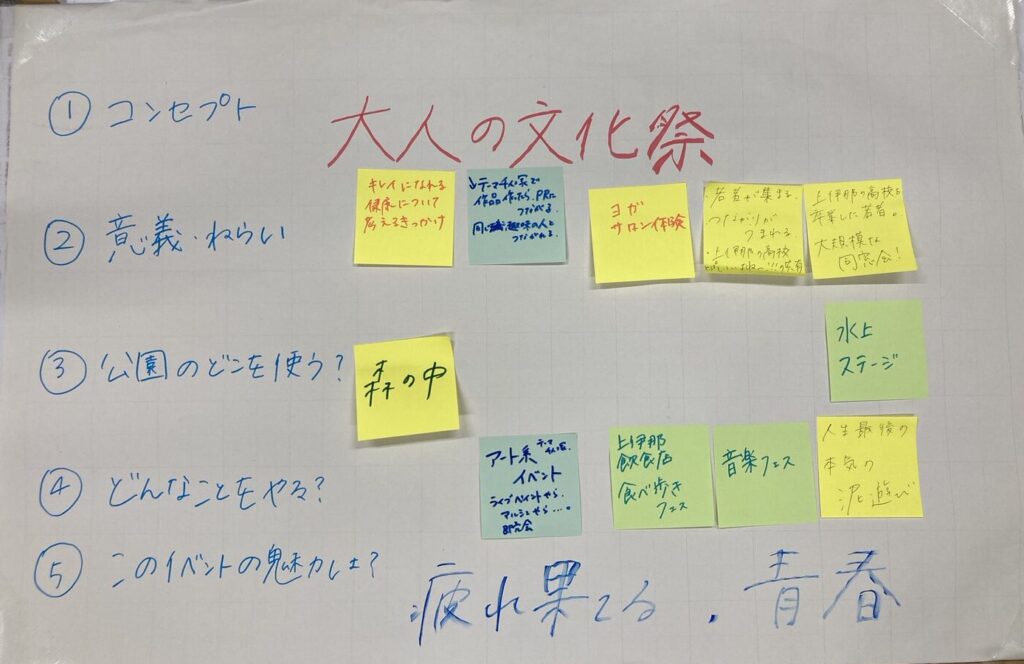 ① コンセプト
大人の文化祭
② 意義・ねらい
キレイになれる
健康について
考えるきっかけ
作品作ったら、PRに
つながる。
同じ趣味の人と
つながれる。
ヨガ
サロン体験
・若者が集まる
つながりが
うまれる
・上伊那の高校
上伊那の高校を
卒業した若者。
大規模な
同窓会!
③ 公園のどこを使う?
森の中
水上
ステージ
④ どんなことをやる?
アート系
イベント
ライブペイントやら、
マルシェやら…。
上伊那
飲食店
食べ歩き
フェス
音楽フェス
人生最後の
本気の
泥遊び
⑤ このイベントの魅力は?
疲れ果てる、青春